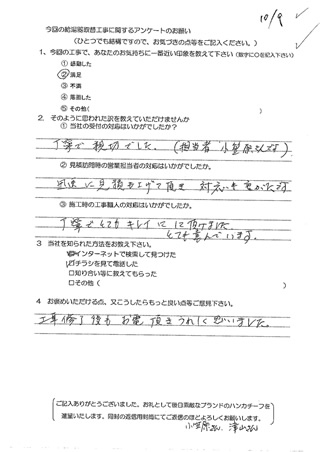 10/9
今回の給湯器取替工事に関するアンケートのお願い
(ひとつでも結構ですので、お気づきの点等をご記入ください。)
1、今回の工事で、あなたのお気持ちに一番近い印象を教えて下さい(数字に○を記入下さい)
① 感動した
② 満足
③ 不満
④ 落胆した
⑤ その他(
2. そのように思われた訳を教えていただけませんか
① 当社の受付の対応はいかがでしたか?
丁寧で親切でした。(担当者 小笠原さんです)
② 見積訪問時の営業担当者の対応はいかがでしたか。
迅速に見積を上げて頂き 対応も良かったです
③ 施工時の工事職人の対応はいかがでしたか。
丁寧でとてもキレイにして頂けました
とても喜んでいます。
3 当社を知られた方法をお教え下さい。
インターネットで検索して見つけた
□チラシを見て電話した
□知り合い等に教えてもらった
□その他(
4 お褒めいただける点、又こうしたらもっと良い点等ご意見下さい。
工事修了後も お電話頂きうれしく思いました。
ご記入ありがとうございました。お礼として後日素敵なブランドのハンカチーフを
進呈いたします。同封の返信用封筒にてご返信のほどよろしくお願いします。
小笠原さん 津山さん